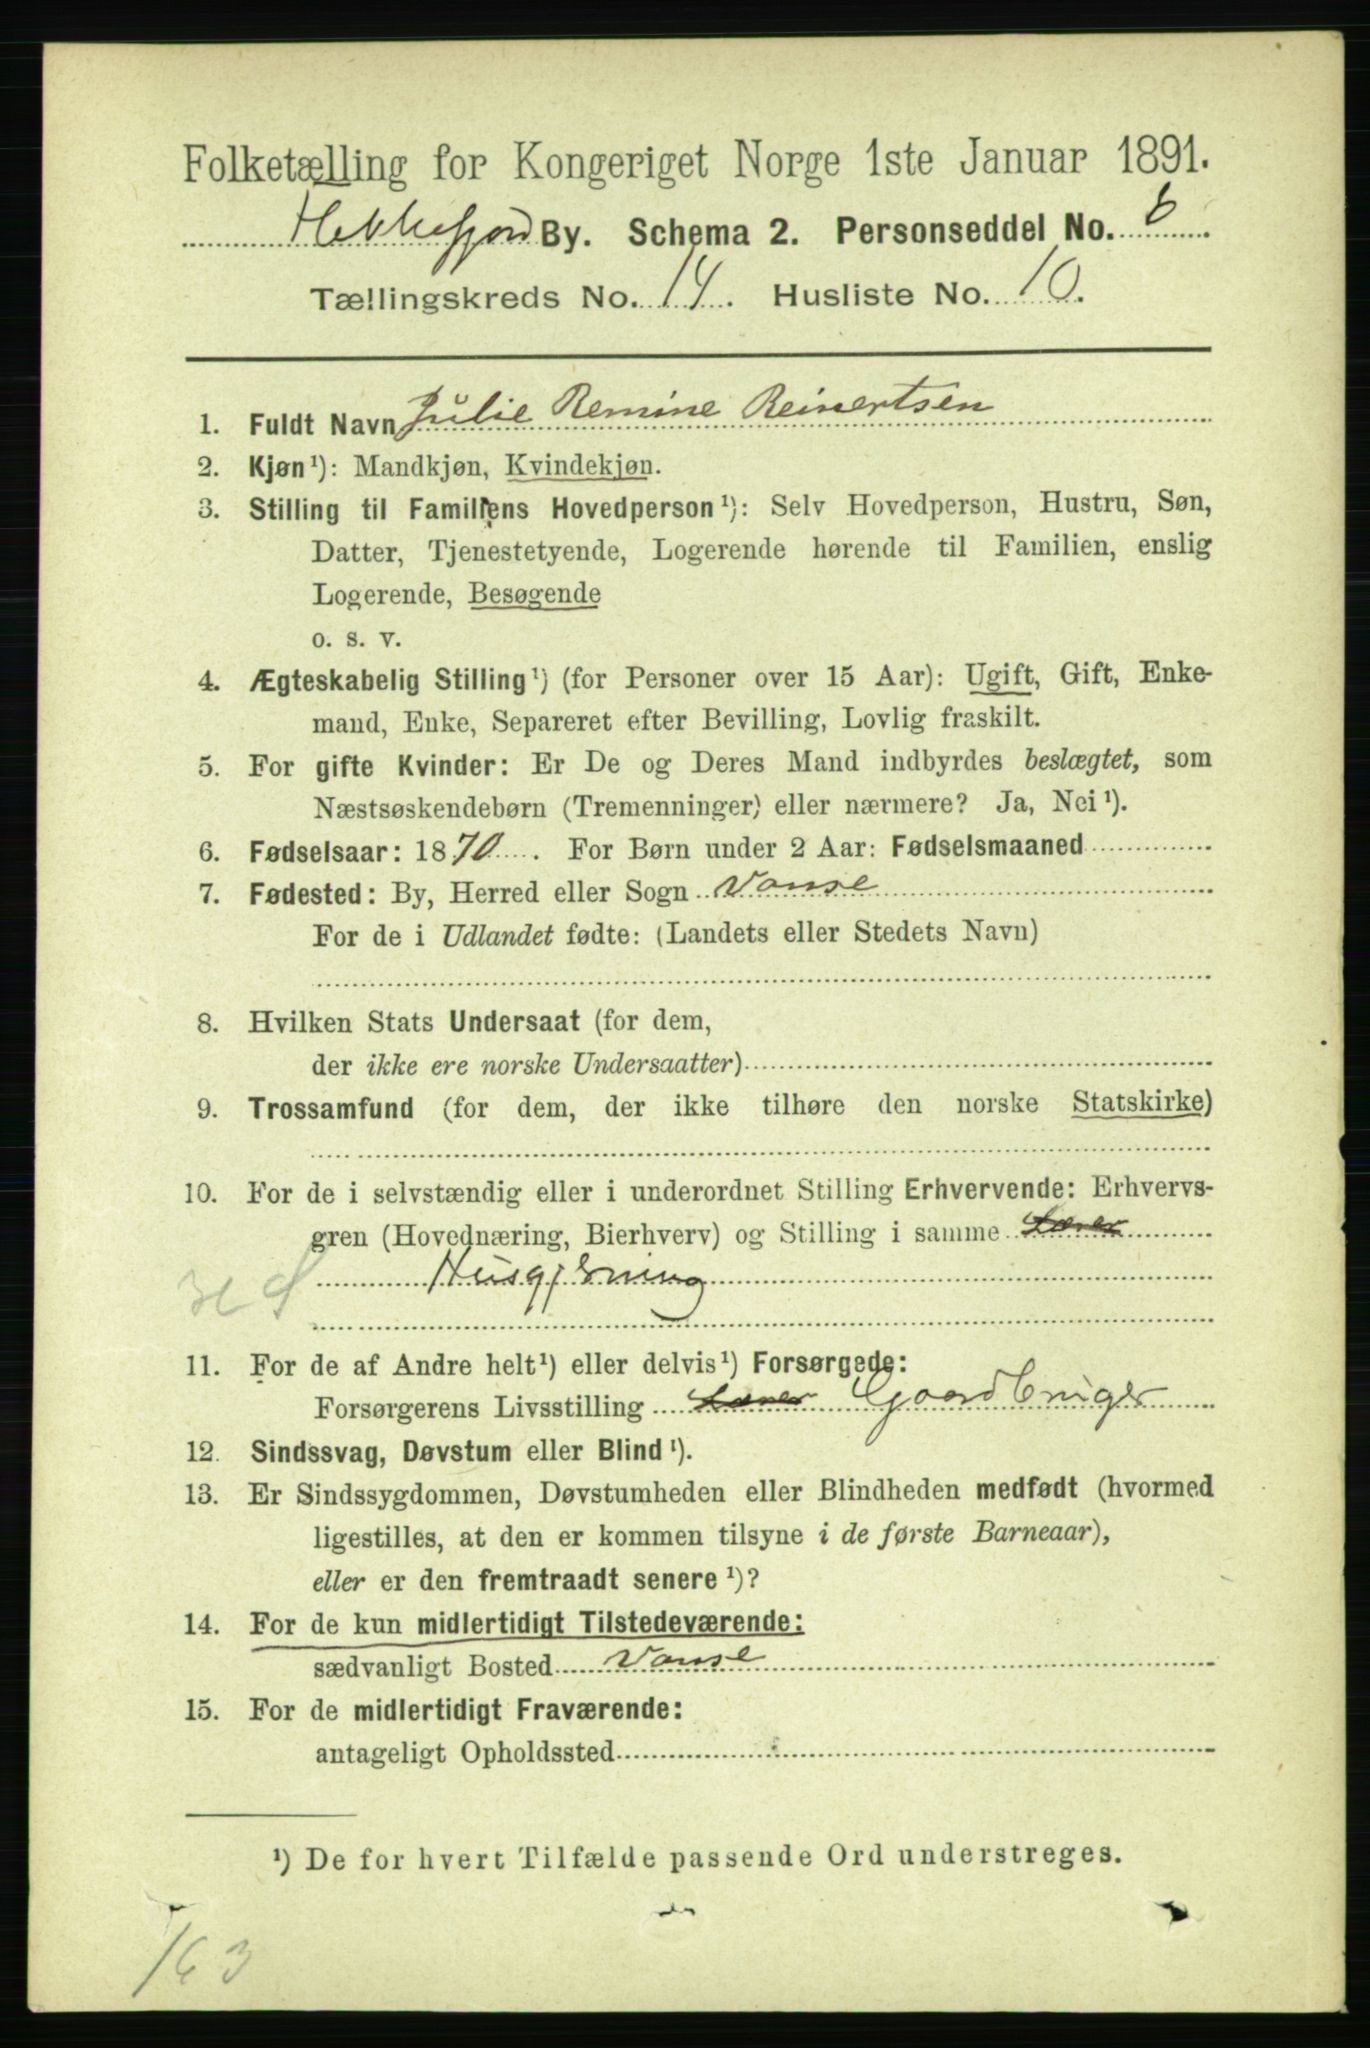 Folketælling for Kongeriget Norge 1ste Januar 1891.
Flekkefjord By. Schema 2. Personseddel No. 6
Tællingskreds No. 14. Husliste No. 10.
1. Fuldt Navn Julie Remine Reinertsen
2. Kjøn¹): Mandkjøn, Kvindekjøn.
3. Stilling til Familiens Hovedperson¹): Selv Hovedperson, Hustru, Søn,
Datter, Tjenestetyende, Logerende hørende til Familien, enslig
Logerende, Besøgende
o. s. v.
4. Ægteskabelig Stilling¹) (for Personer over 15 Aar): Ugift, Gift, Enke-
mand, Enke, Separeret efter Bevilling, Lovlig fraskilt.
5. For gifte Kvinder: Er De og Deres Mand indbyrdes beslægtet, som
Næstsøskendebørn (Tremenninger) eller nærmere? Ja, Nei¹).
6. Fødselsaar: 1870. For Børn under 2 Aar: Fødselsmaaned
7. Fødested: By, Herred eller Sogn Vanse
For de i Udlandet fødte: (Landets eller Stedets Navn)
8. Hvilken Stats Undersaat (for dem,
der ikke ere norske Undersaatter)
9. Trossamfund (for dem, der ikke tilhøre den norske Statskirke)
10. For de i selvstændig eller i underordnet Stilling Erhvervende: Erhvervs-
gren (Hovednæring, Bierhverv) og Stilling i samme
Husgjerning
11. For de af Andre helt¹) eller delvis¹) Forsørgede:
Forsørgerens Livsstilling Gaardbruger
12. Sindssvag, Døvstum eller Blind¹).
13. Er Sindssygdommen, Døvstumheden eller Blindheden medfødt (hvormed
ligestilles, at den er kommen tilsyne i de første Barneaar),
eller er den fremtraadt senere¹)?
14. For de kun midlertidigt Tilstedeværende:
sædvanligt Bosted Vanse
15. For de midlertidigt Fraværende:
antageligt Opholdssted
¹) De for hvert Tilfælde passende Ord understreges.
163